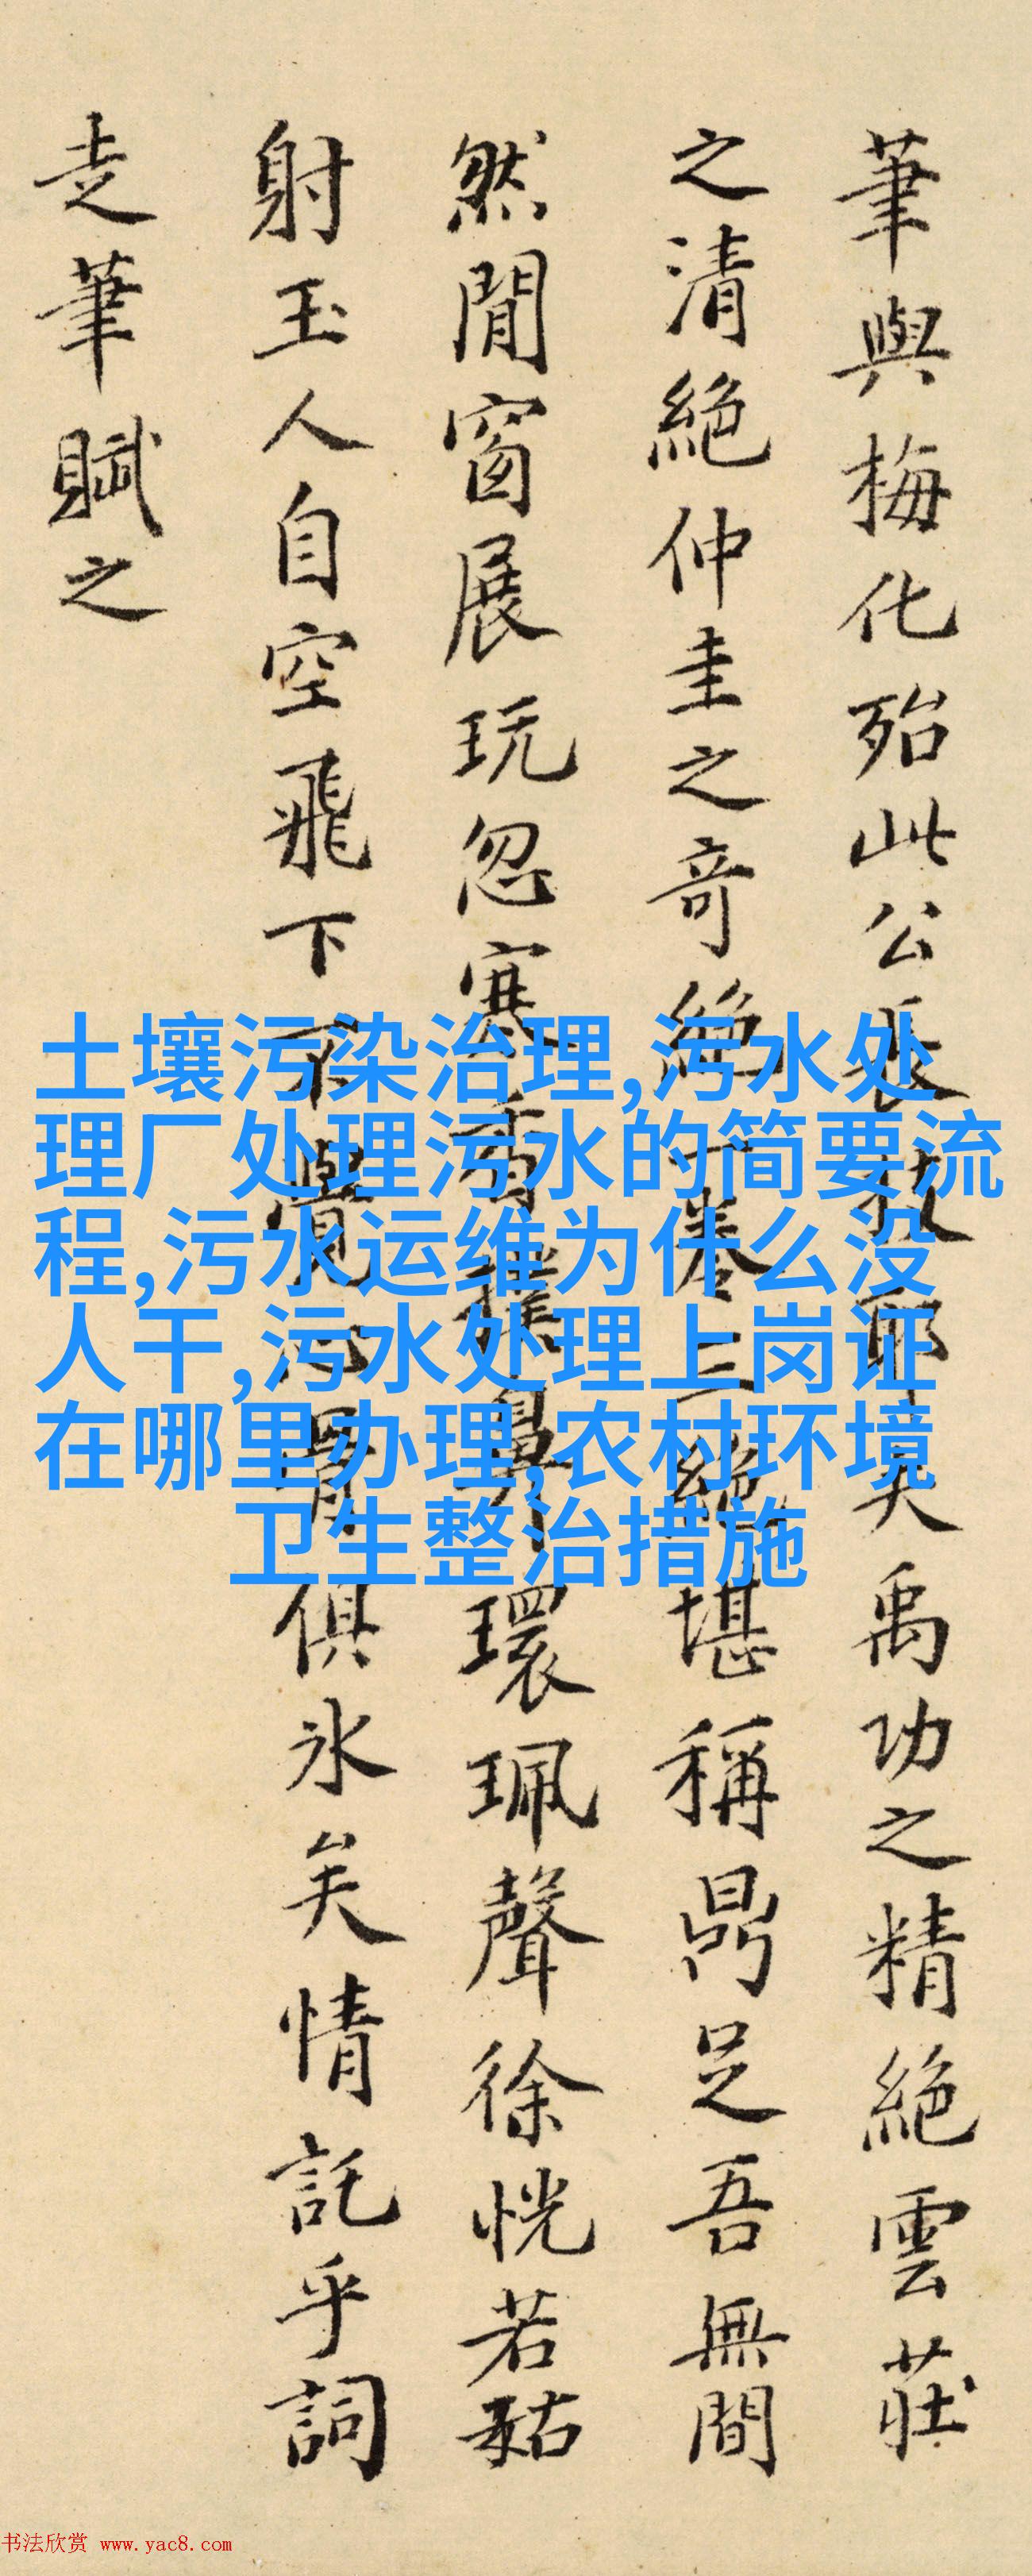 筆與梅化殆此公長技耶矣禹功之精絕雲莊
之清絕仲圭之奇絕卷三絕堪稱鼎足吾無間
然閒窗展玩忽寒香撲鼻環珮聲徐恍若
射玉人自空飛下不覺骨俱冰矣情託乎詞
走筆賦之
土壤污染治理,污水处
理厂处理污水的简要流
程,污水运维为什么没
人干,污水处理上岗证
在哪里办理,农村环境
卫生整治措施
书法欣赏 www.yac8.com